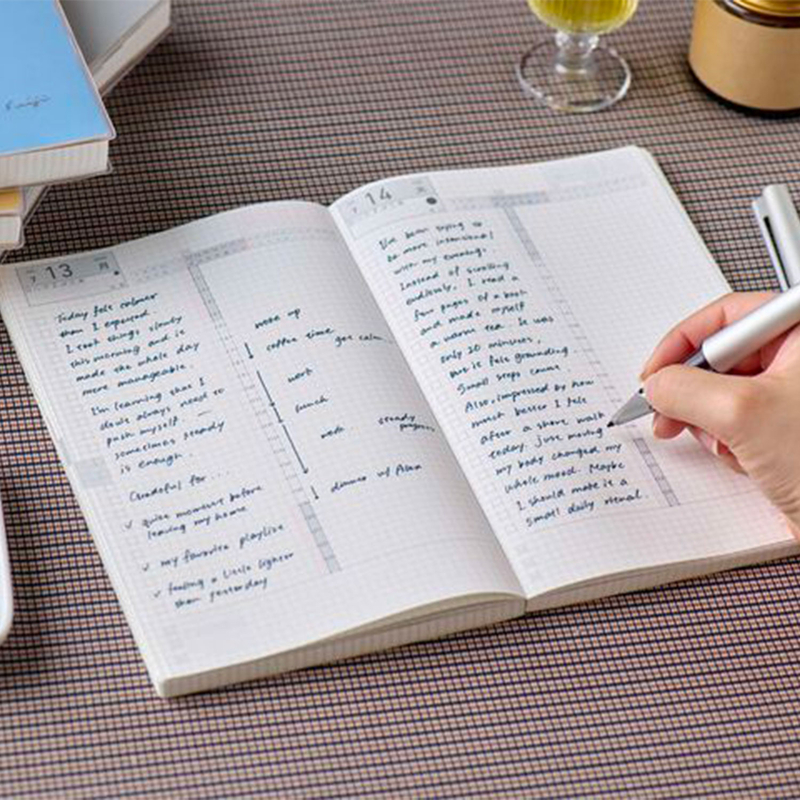 7 13 月
Today felt calmer
than I expected.
I took things slowly
this morning and it
made the whole day
more manageable.
I'm learning that I
don't always need to
push myself. —
sometimes steady
is enough.
Grateful for...
✓ quite moments before
leaving my home
✓ my favorite playlist
✓ feeling a little lighter
than yesterday
wake up
coffee time get calm..
work
lunch
walk steady
dinner w/ Alan
7 14 火
I've been trying to
be more intentional
with my evening.
Instead of scrolling
endlessly, I read a
few pages of a book
and made myself
a warm tea. It was
only 20 minutes,
but it felt grounding.
Small steps count.
Also impressed by how
much better I felt
after a short walk
today. just moving
my body changed my
whole mood. Maybe
I should make it a
small daily ritual.